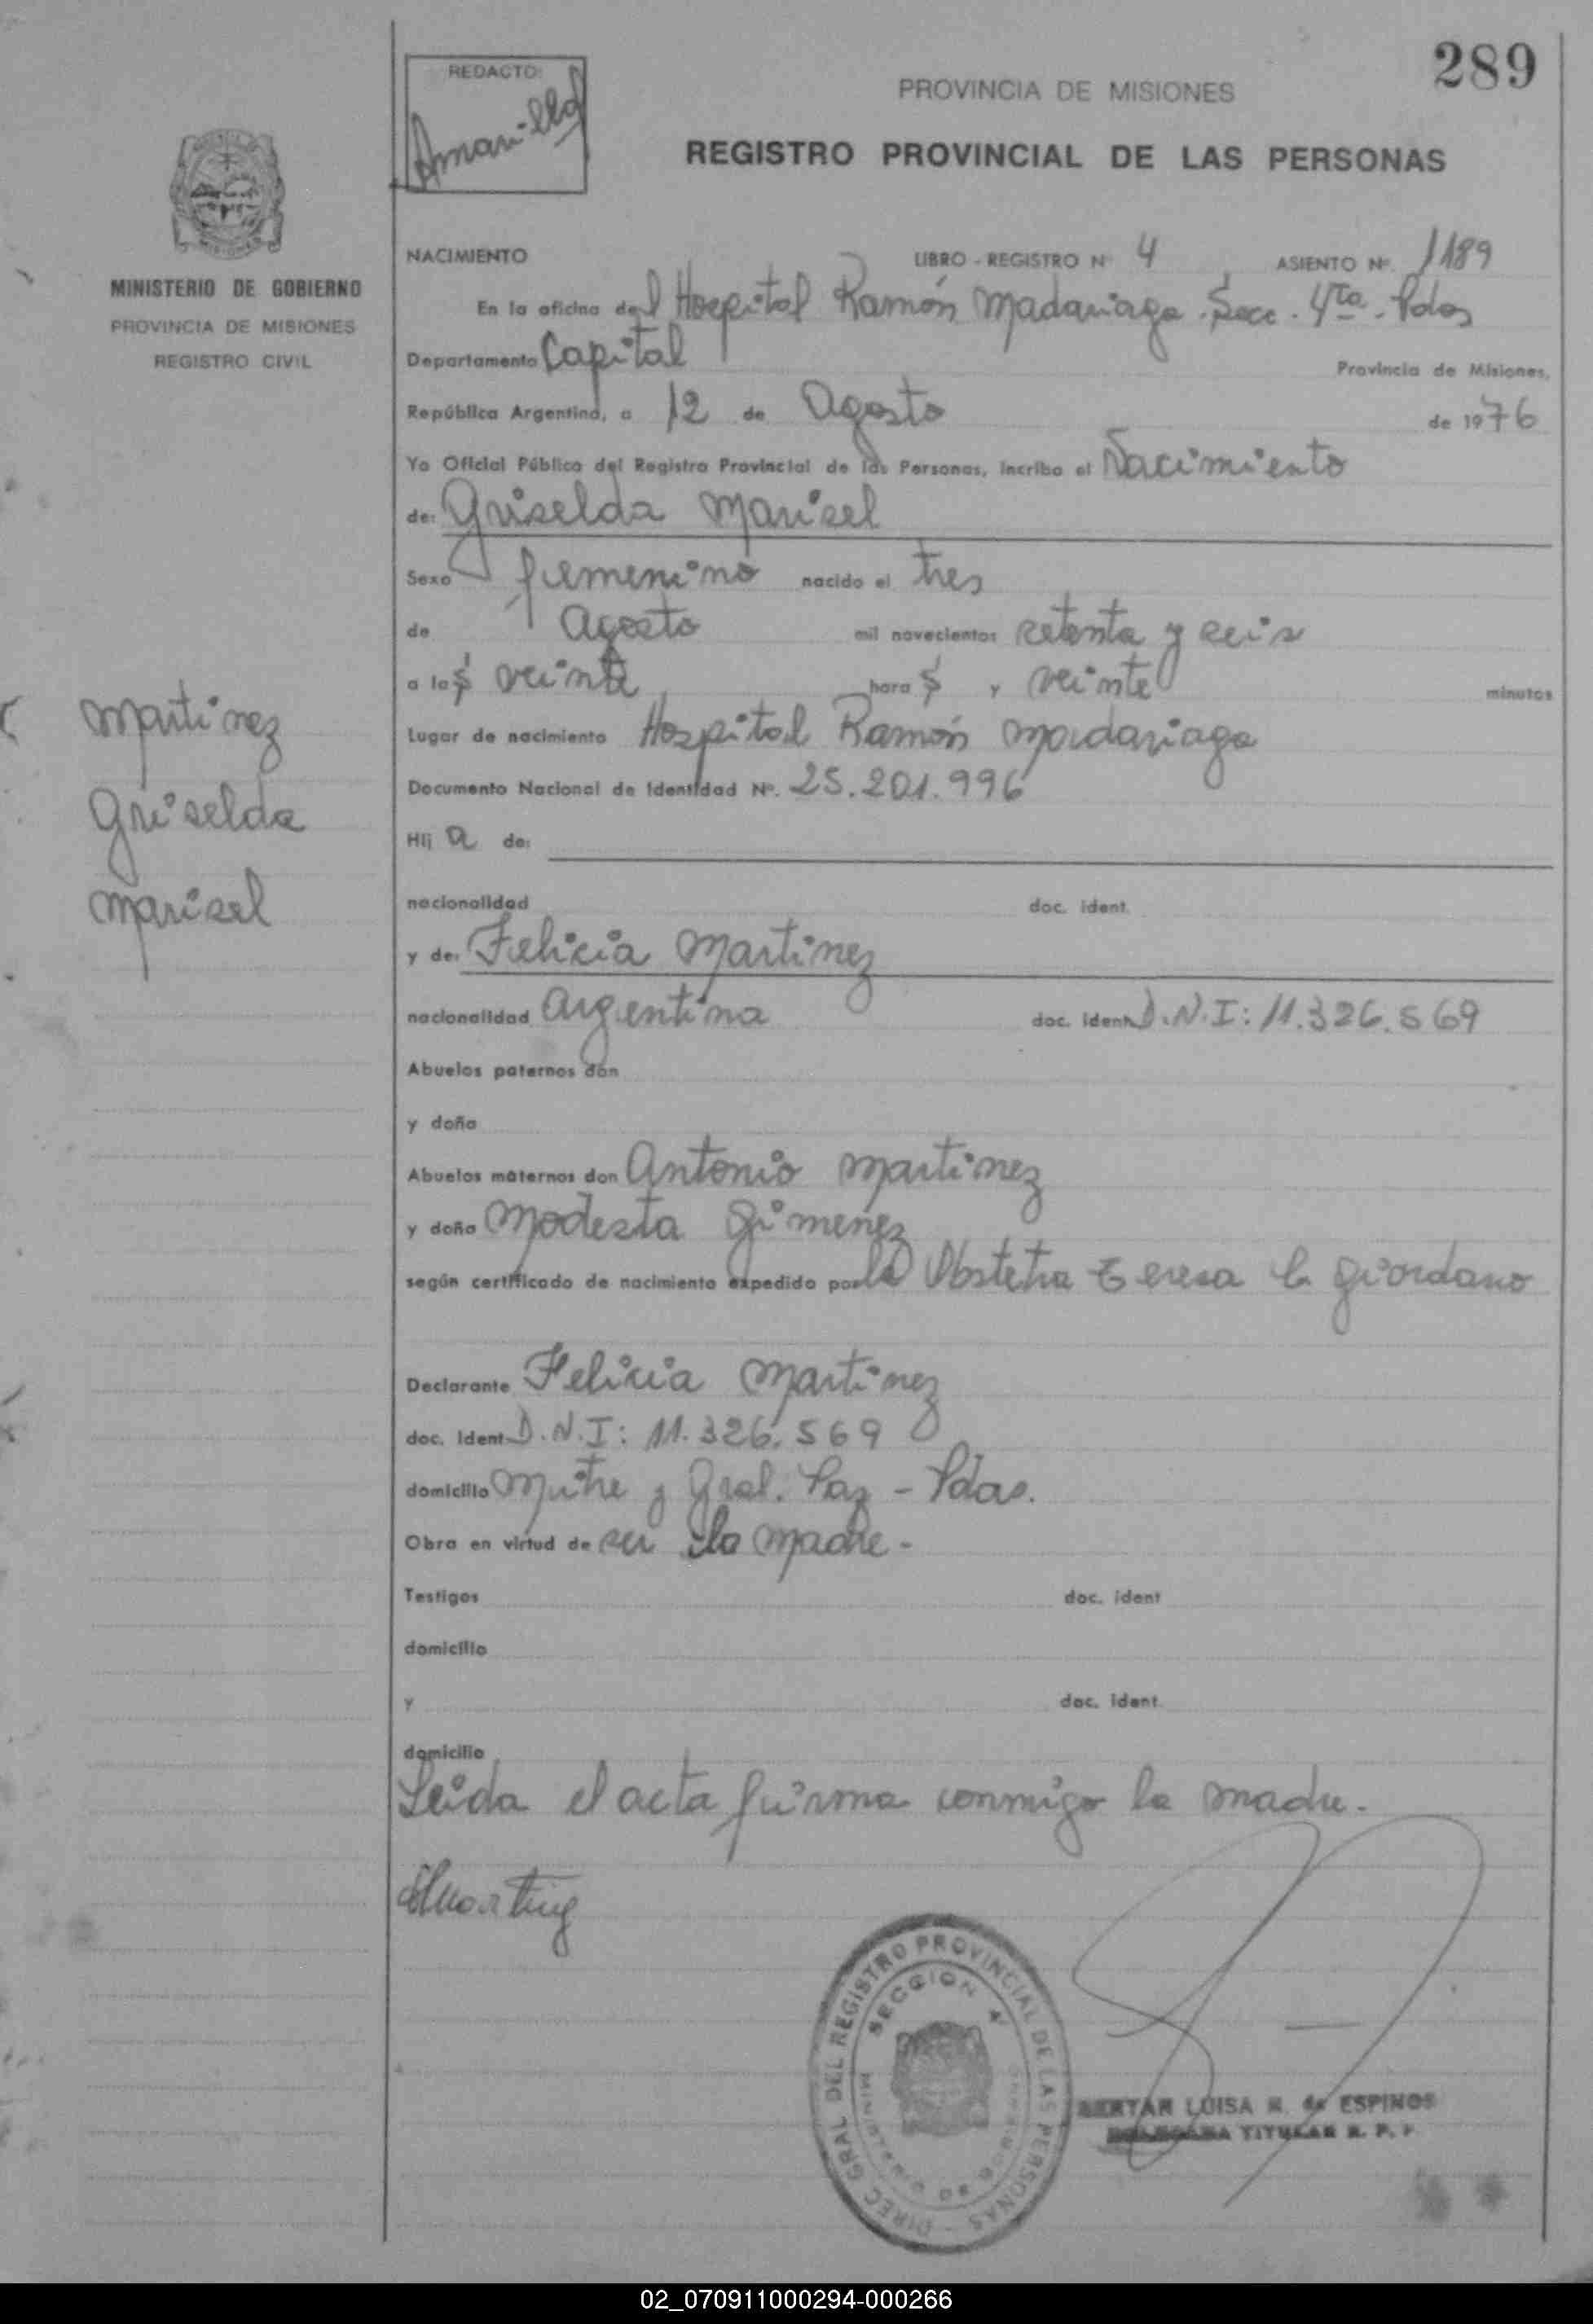 289
REDACTO:
Amarilla
PROVINCIA DE MISIONES
REGISTRO PROVINCIAL DE LAS PERSONAS
MINISTERIO DE GOBIERNO
PROVINCIA DE MISIONES
REGISTRO CIVIL
NACIMIENTO LIBRO - REGISTRO Nº 4 ASIENTO Nº 1189
En la oficina del Hospital Ramón Madariaga. Secc. 4ta. Pdas
Departamento Capital Provincia de Misiones,
República Argentina, a 12 de Agosto de 1976
Yo Oficial Público del Registro Provincial de las Personas, incribo el Nacimiento
de: Griselda Marisel
Sexo femenino nacido el tres
de Agosto mil novecientos setenta y seis
a las veinte horas y veinte minutos
Lugar de nacimiento Hospital Ramón Madariaga
Documento Nacional de Identidad Nº. 25.201.996
Martinez
Griselda
Marisel
Hij a de:
nacionalidad doc. ident.
y de: Felicia Martinez
nacionalidad Argentina doc. ident. D.N.I: 11.326.569
Abuelos paternos don
y doña
Abuelos maternos don Antonio Martinez
y doña Modesta Gimenez
según certificado de nacimiento expedido por la Obstetra Teresa C. Giordano
Declarante Felicia Martinez
doc. Ident. D.N.I: 11.326.569
domicilio Mitre y Gral. Paz - Pdas.
Obra en virtud de ser la madre -
Testigos doc. ident
domicilio
y doc. ident.
domicilio
Leida el acta firma conmigo la madre.
DIREC GRAL DEL REGISTRO PROVINCIAL DE LAS PERSONAS -
SECCION 4
MINISTERIO DE GOBIERNO
LUISA R. de ESPINOS
TITULAR R. P. P.
02_070911000294-000266